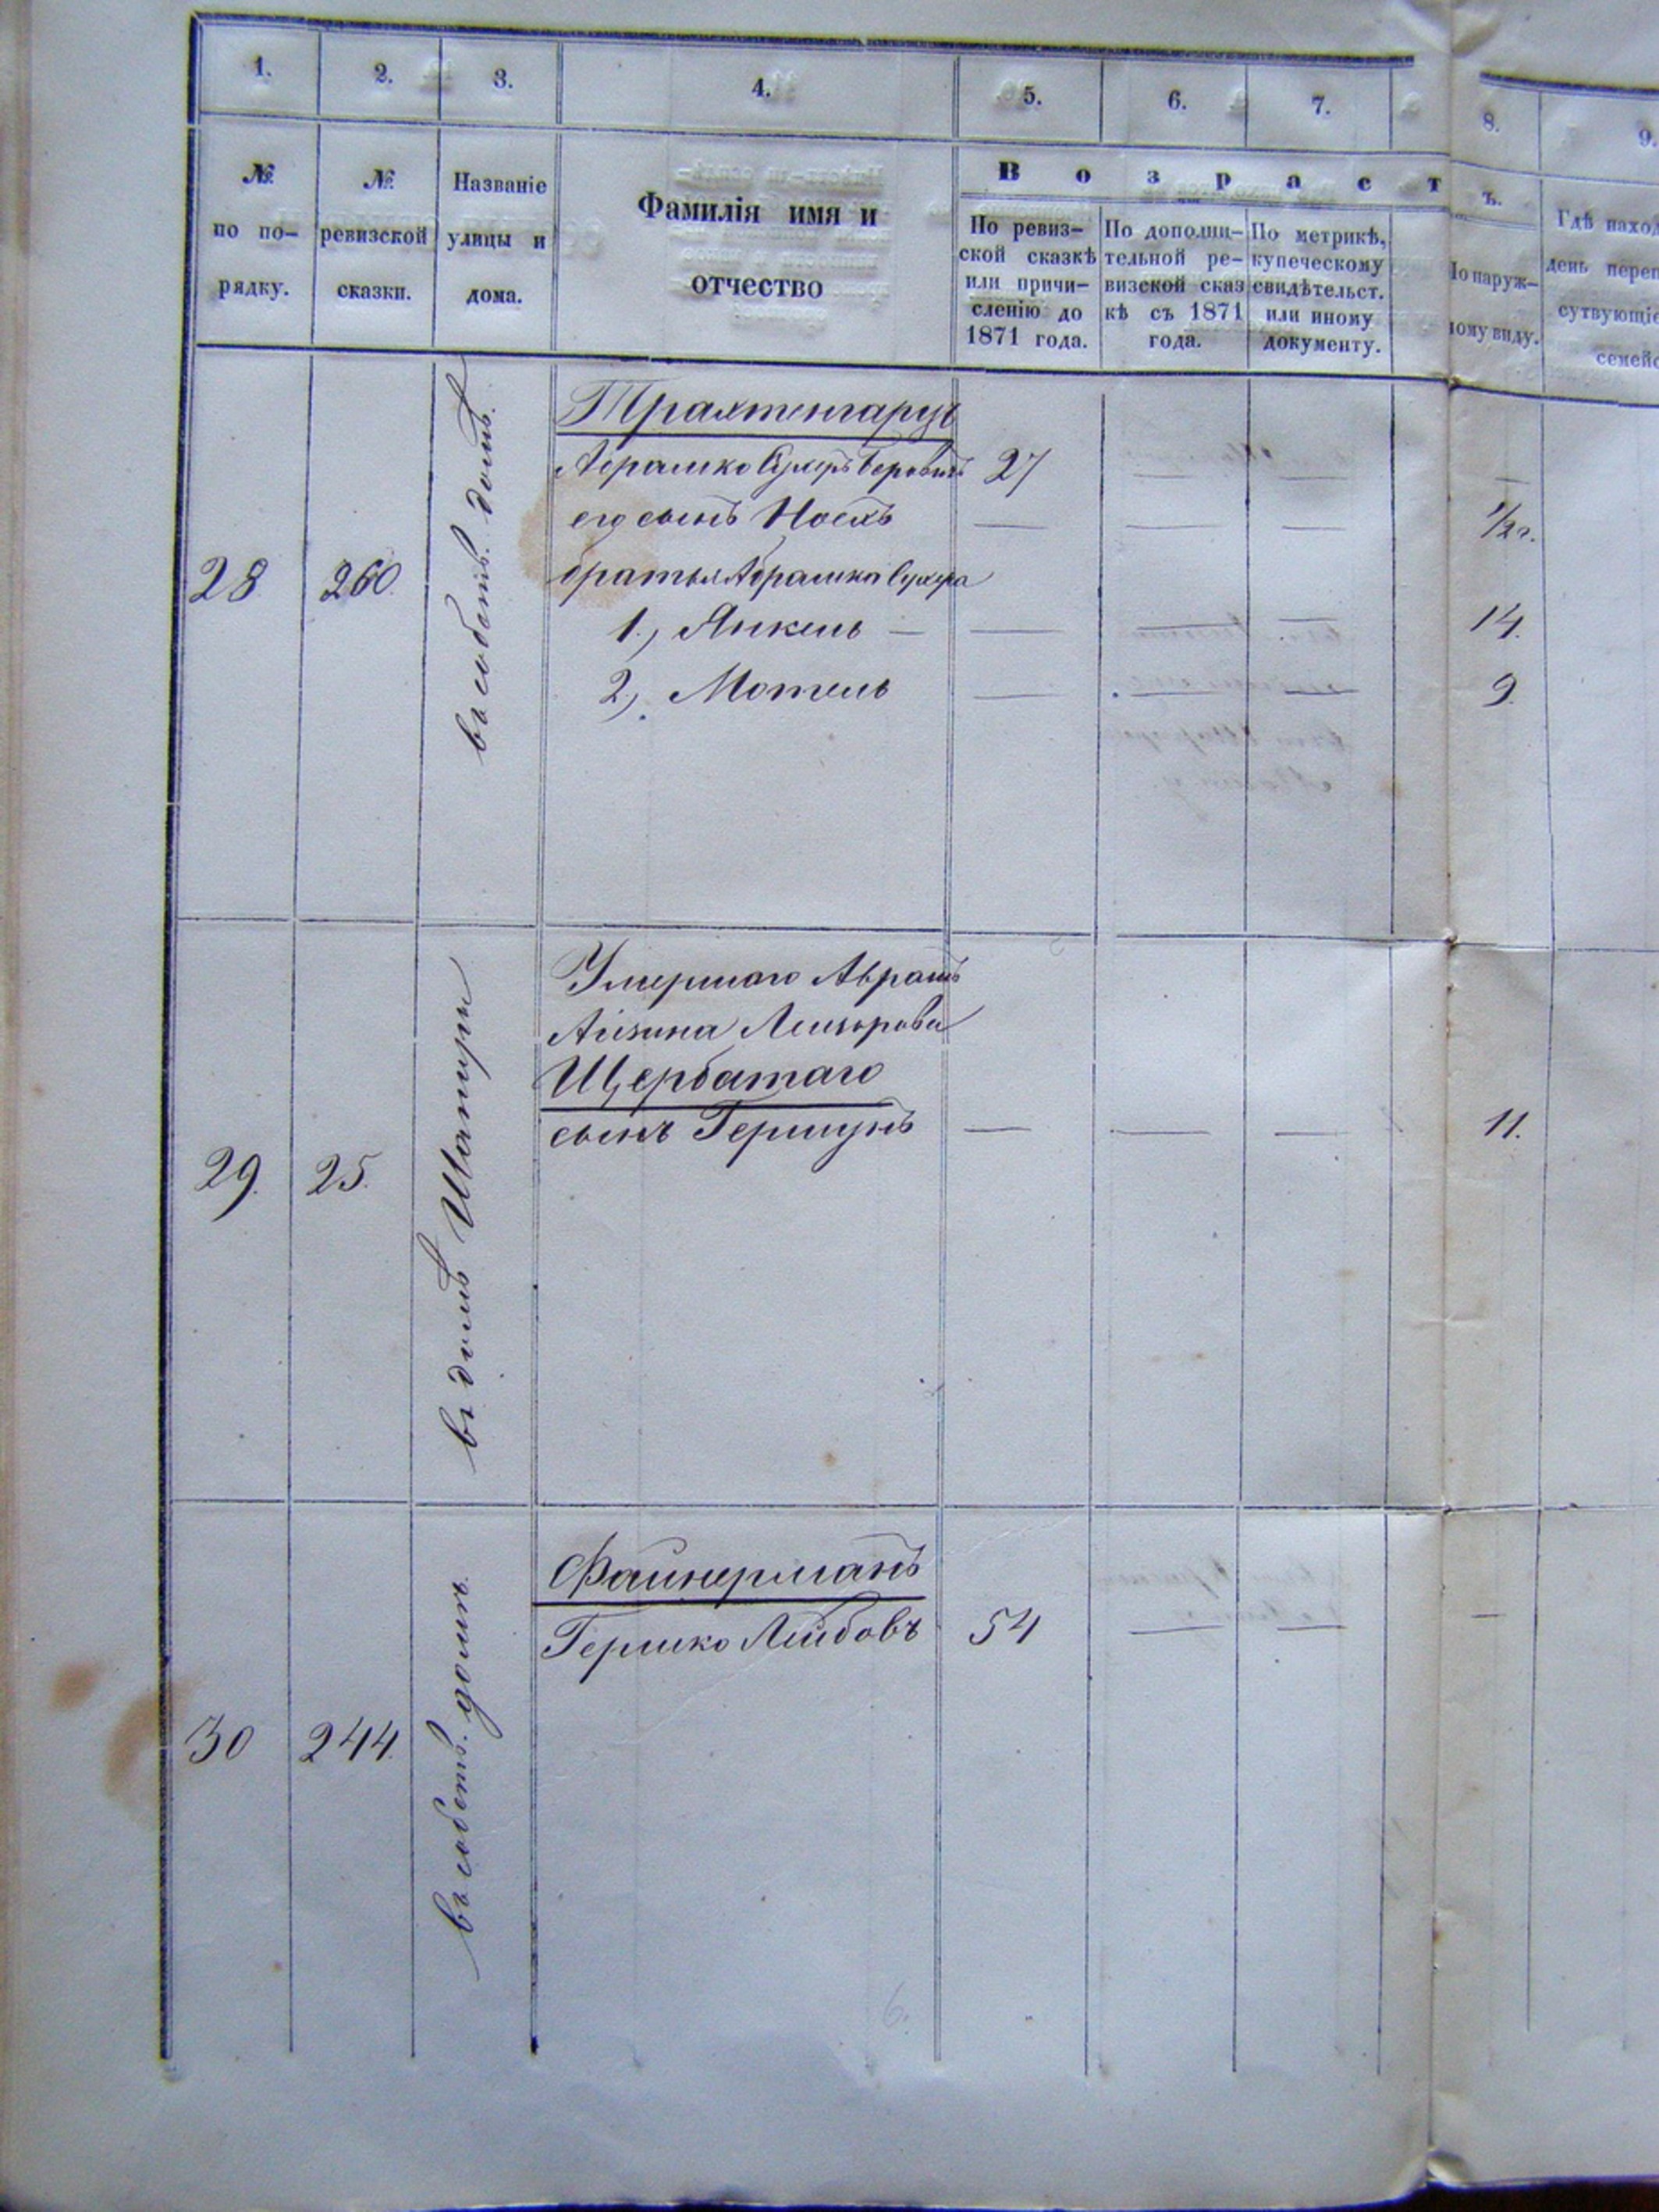 1. 2. 3. 4. 5. 6. 7. 8. 9.
№ по порядку.
№ ревизской сказки.
Названіе улицы и дома.
Фамилія имя и отчество
Возрастъ.
По ревизской сказкѣ или причисленію до 1871 года.
По дополнительной ревизской сказкѣ съ 1871 года.
По метрикѣ, купеческому свидѣтельст. или иному документу.
По наружному виду.
Гдѣ наход
день переп
сутвующіе
семейс
28 260. въ собств. домѣ.
Трахтенгарцъ
Абрамко Сухеръ Беровичъ 27 — — —
его сынъ Носехъ — — — 1/2 г.
братья Абрамка Сухера
1., Янкель — — — — 14.
2., Мотель — — — 9.
29. 25. въ домѣ Шапиры
Умершаго Аврамъ
Айзика Лейзорова
Щербатаго
сынъ Гершунъ — — — 11.
30 244. въ собств. домѣ.
Файнерманъ
Гершко Лейбовъ 54 — — —
6.